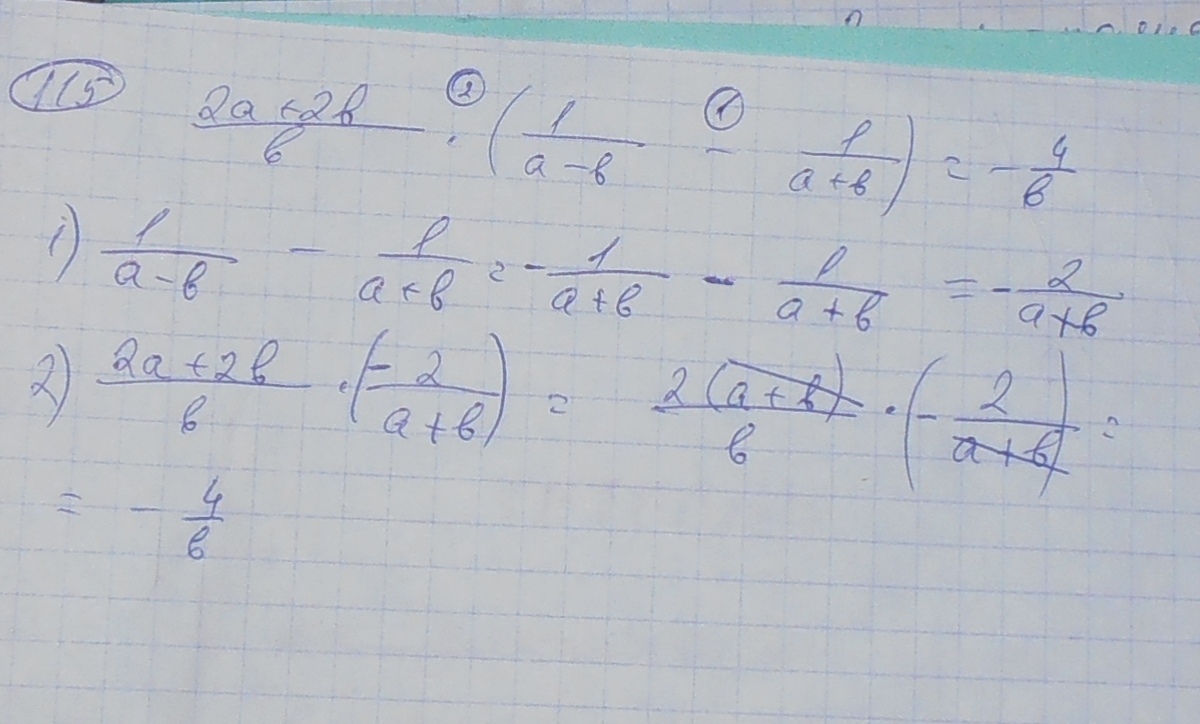 115
(2a+2b)/b ·② (1/(a-b) -① 1/(a+b)) = -4/b
1) 1/(a-b) - 1/(a+b) = -1/(a+b) - 1/(a+b) = -2/(a+b)
2) (2a+2b)/b · (-2/(a+b)) = 2(a+b)/b · (-2/(a+b)) =
= -4/b